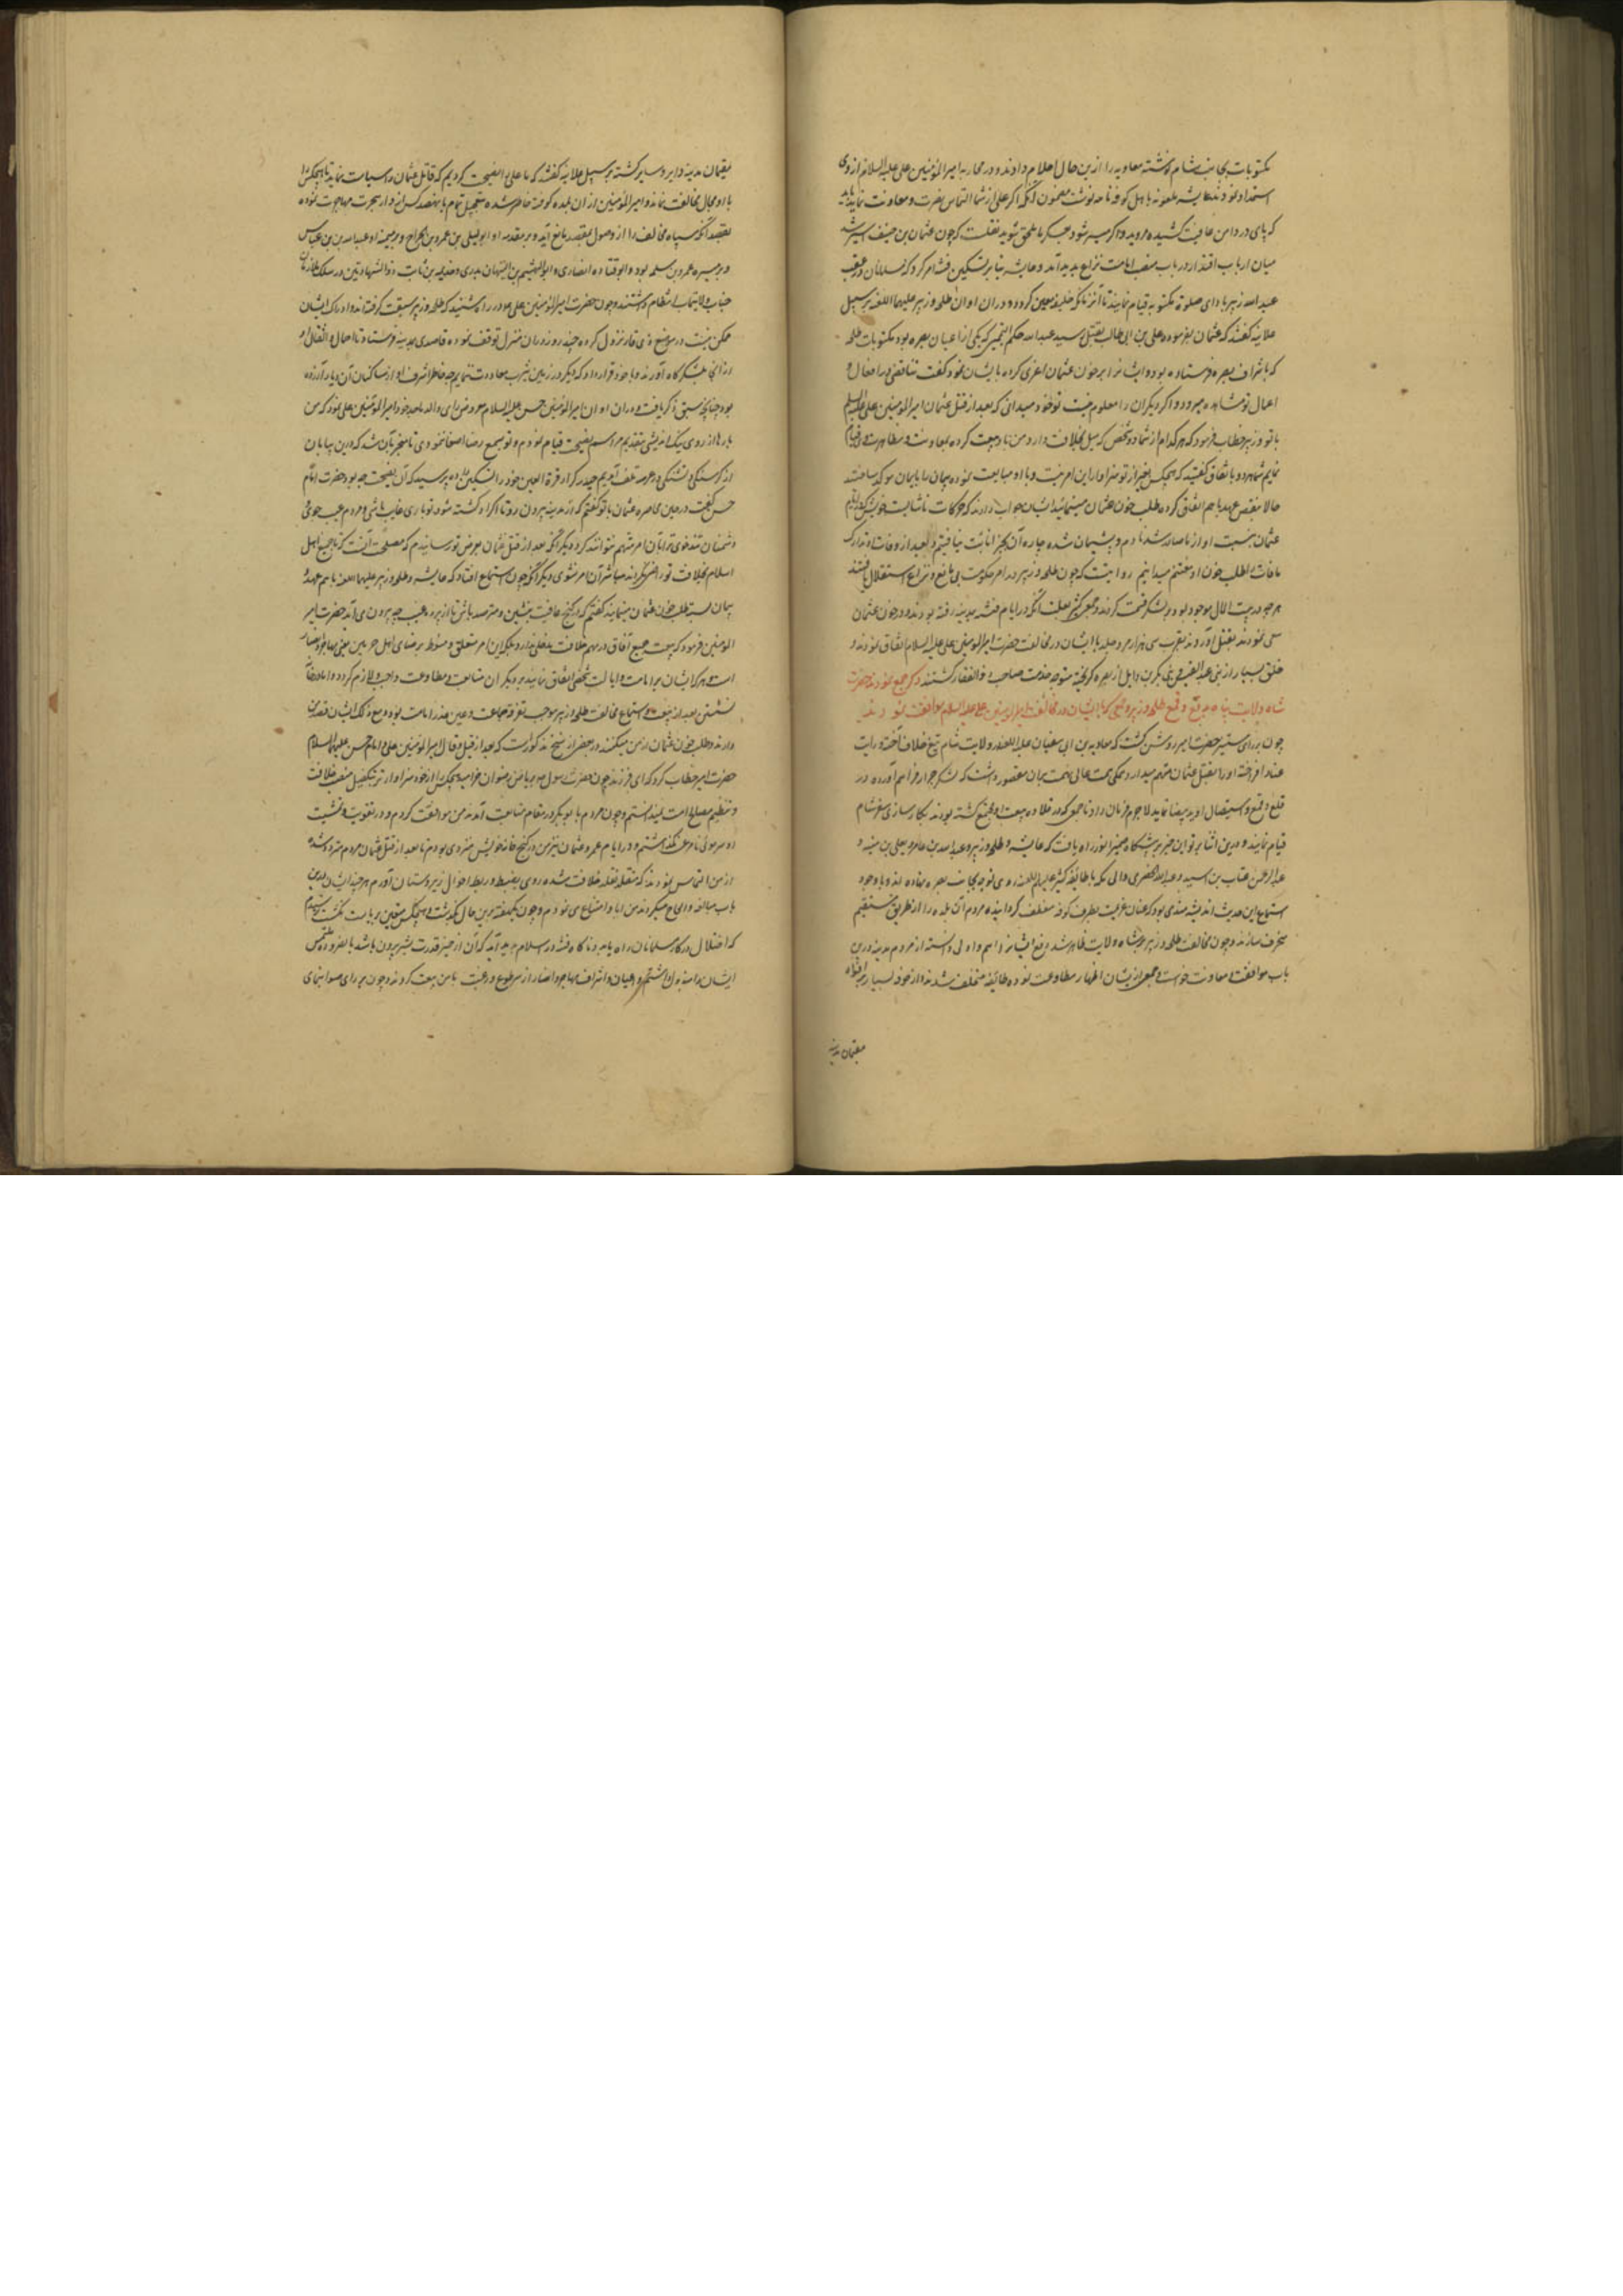 مکتوبات بجانب شام نوشته معاویه را ازین حال اعلام دادند و در محاربه امیرالمؤمنین علی علیه السلام از وی
استمداد نمودند عایشه ملعونه باهل کوفه نامه نوشت مضمون آنکه اگر علی از شما التماس نصرت و معاونت نماید باید
که پای در دامن عافیت کشیده مروید و اگر میسر شود بعسکر ما ملحق شوید نقلست که چون عثمان بن حنیف اسیر شد
میان ارباب اقتدار در باب منصب امامت نزاع پدید آمد و عایشه بنا بر تسکین فتنه امر کرد که مسلمانان در عقب
عبدالله زبیر بادای صلوة مکتوبه قیام نمایند تا آنزمانکه خلیفه معین کردد و در ان اوان طلحه و زبیر علیهما اللعنه بر سبیل
علانیه گفتند که عثمان بفرموده علی بن ابی طالب بقتل رسید عبدالله حکم التمیمی که یکی از اعیان بصره بود مکتوبات طلحه
که باشراف بصره فرستاده بود و ایشانرا بر خون عثمان اغری کرده بایشان نمود و گفت تناقضی در افعال و
اعمال تو مشاهده میرود و اکر دیگران را معلوم نیست تو خود میدانی که بعد از قتل عثمان امیرالمؤمنین علی علیه السلم
با تو و زبیر خطاب فرمود که هر کدام از شما دو شخص که میل بخلافت دارد من با او بیعت کرده بمعاونت و مظاهرت او قیام
نمایم شما هر دو باتفاق گفتید که هیچکس بغیر از تو سزاوار این امر نیست و با او مبایعت نموده پیمان را بایمان موکد ساختید
حالا بنقض عهد با هم اتفاق کرده طلب خون عثمان مینمائید ایشان جواب دادند که حرکات ناشایست خویش که در ایام
عثمان نسبت او از ما صادر شد نادم و پشیمان شده چاره آن بجز انابت نیافتیم و بعد از وفات او تدارک
مافات را طلب خون او مغتنم میدانیم روایتست که چون طلحه و زبیر در امر حکومت بی مانع و نزاع استقلال یافتند
هر چه در بیت المال موجود بود بر لشکر قسمت کردند و جمعی کثیر بعلت آنکه در ایام فتنه بمدینه رفته بودند و در خون عثمان
سعی نمودند بقتل آوردند بقرب سی هزار مرد حلبد با ایشان در مخالفت حضرت امیرالمومنین علی علیه السلام اتفاق نمودند و
خلق بسیار از بنی عبدالقیس و بنی بکر بن وایل از بصره گریخته متوجه خدمت صاحب ذوالفقار گشتند ذکر جمع نمودن حضرت
شاه ولایت پناه بدفع و قمع طلحه و زبیر و جمعی که با ایشان در مخالفت امیرالمومنین علی علیه السلام موافقت نمودند
چون بر رای مستنیر حضرت امیر روشن گشت که معاویه بن ابی سفیان علیه اللعنه در ولایت شام تیغ خلاف آخته و رایت
عناد افراخته او را بقتل عثمان متهم میدارد و همگی همت عالی نهمت بران مقصور داشت که لشکر جرار فراهم آورده در
قلع و قمع و استیصال او ید بیضا نماید لاجرم فرمان داد تا جمعی که در قلاده بیعت او مجتمع گشته بودند بکارسازی سفر شام
قیام نمایند و درین اثنا پرتو این خبر بر پیشگاه ضمیر انور راه یافت که عایشه و طلحه و زبیر و عبدالله بن عامر و یعلی بن منیه و
عبدالرحمن عتاب بن اسید و عبدالله الحضرمی والی مکه با طایفه کثیر علیهم اللعنه روی توجه بجانب بصره نهاده اند و با وجود
استماع این حدیث اندیشه مند می بود که عنان عزیمت بطرف کوفه منعطف گردانیده مردم آن بلده را از طریق مستقیم
منحرف سازند و چون مخالفت طلحه و زبیر بر شاه ولایت ظاهر شد دفع ایشانرا اهم و اولی دانسته از مردم مدینه درین
باب موافقت و معاونت خواست و جمعی از یشان اظهار مطاوعت نموده طائفه متخلف شدند و از خوف بسیار
مقیمان مدینه
مقیمان مدینه دایر و سایر گشته بر سبیل علانیه گفتند که ما علی را نصیحت کردیم که قاتل عثمان را سیاست نماید تا هیچکس را
با او مجال مخالفت نماند و امیرالمؤمنین از ان بلده کوفت خاطر شده بتعجیل تمام با نهصد کس از دار هجرت مهاجرت نموده
بقصد آنکه سپاه مخالف را از وصول بمقصد مانع آید و بر مقدمه او ابو لیلی بن عمرو بن الجراح و بر میمنه او عبدالله بن عباس
و بر میسره عمرو بن سلمه بود و ابو قتاده انصاری و ابو الهیثم بن التیهان بدری و خذیمه بن ثابت ذوالشهادتین در سلک ملازمان
جناب ولایتماب انتظام داشتند و چون حضرت امیرالمؤمنین علی در راه شنید که طلحه و زبیر سبقت گرفته اند و ادراک ایشان
ممکن نیست در موضع ذی قار نزول کرده چند روز در ان منزل توقف نموده قاصدی بمدینه فرستاد تا احمال و اثقال او
از انجا بلشکرگاه آورند و با خود قرار داد که دیگر در زمین یثرب معاودت ننمایم چه خاطر اشرف او از ساکنان آن دیار آزرده
بود چنانچه سبق ذکر یافت و در ان اوان امیرالمؤمنین حسن علیه السلام معروض رای والد ماجد خود امیرالمؤمنین علی نمود که من
بارها از روی نیک اندیشی بتقدیم مراسم نصیحت قیام نمودم و تو بسمع رضا اصغا ننمودی تا منجر بآن شد که درین بیابان
از گرسنگی و تشنگی در عرصه تلف آییم حیدر کرار قرة العین خود را تسکین داده پرسید که آن نصیحت چه بود حضرت امام
حسن گفت در حین محاصره عثمان با تو گفتم که از مدینه بیرون رو تا اگر او کشته شود تو باری غایب باشی و مردم عیب جوی
و دشمنان تندخوی ترا بآن امر متهم نتوانند کرد و دیگر آنکه بعد از قتل عثمان بعرض تو رسانیدم که مصلحت آنست که تا جمیع اهل
اسلام بخلافت تو راضی نگردند مباشر آن امر نشوی و دیگر آنکه چون استماع افتاد که عایشه و طلحه و زبیر علیهما اللعنه با هم عهد و
پیمان بسته طلب خون عثمان مینمایند گفتم که در کنج عافیت بنشین و مترصد باش تا از پرده غیب چه بیرون می آید حضرت امیر
المومنین فرمود که بیعت جمیع آفاق در مهم خلافت مدخلی ندارد بلکه این امر متعلق و منوط برضای اهل حرمین یعنی مهاجر و انصار
است و هر گاه ایشان بر امامت و ایالت شخصی اتفاق نمایند بر دیگران متابعت و مطاوعت واجب و لازم گردد و اما در خانه
نشستن بعد از بیعت و استماع مخالفت طلحه و زبیر موجب تفرقه جماعت و عین عذر امامت بود و مع ذلک ایشان قصد من
دارند و طلب خون عثمان از من میکنند در بعضی از نسخ مذکورست که بعد از قیل و قال امیرالمؤمنین علی و امام حسن علیهما السلام
حضرت امیر خطاب کرد که ای فرزند چون حضرت رسول ص بریاض رضوان خرامید هیچکس را از خود سزاوارتر بتکفیل منصب خلافت
و تنظیم مصالح امت نمیدانستم و چون مردم با ابو بکر در مقام متابعت آمدند من موافقت کردم و در تقویت و تمشیت
او سر موئی نامرعی نگذاشتم و در ایام عمر و عثمان نیز من در کنج خانه خویش منزوی بودم تا بعد از قتل عثمان مردم متردد شده
از من التماس نمودند که متقلد قلاده خلافت شده روی بضبط و ربط احوال زیردستان آورم هر چند ایشان درین
باب مبالغه و الحاح میکردند من ابا و امتناع می نمودم و چون یکهفته برین حال بگذشت و هیچکس متعین بریاست نگشت ترسیدم
که اختلال در کار مسلمانان راه یابد و ناگاه فتنه در اسلام پدید آید که آن از حیز قدرت بشر بیرون باشد بالضروره ملتمس
ایشان را مبذول داشتم و اعیان و اشراف مهاجر و انصار از سر طوع و رغبت با من بیعت کردند و چون بر رای صوابنمای